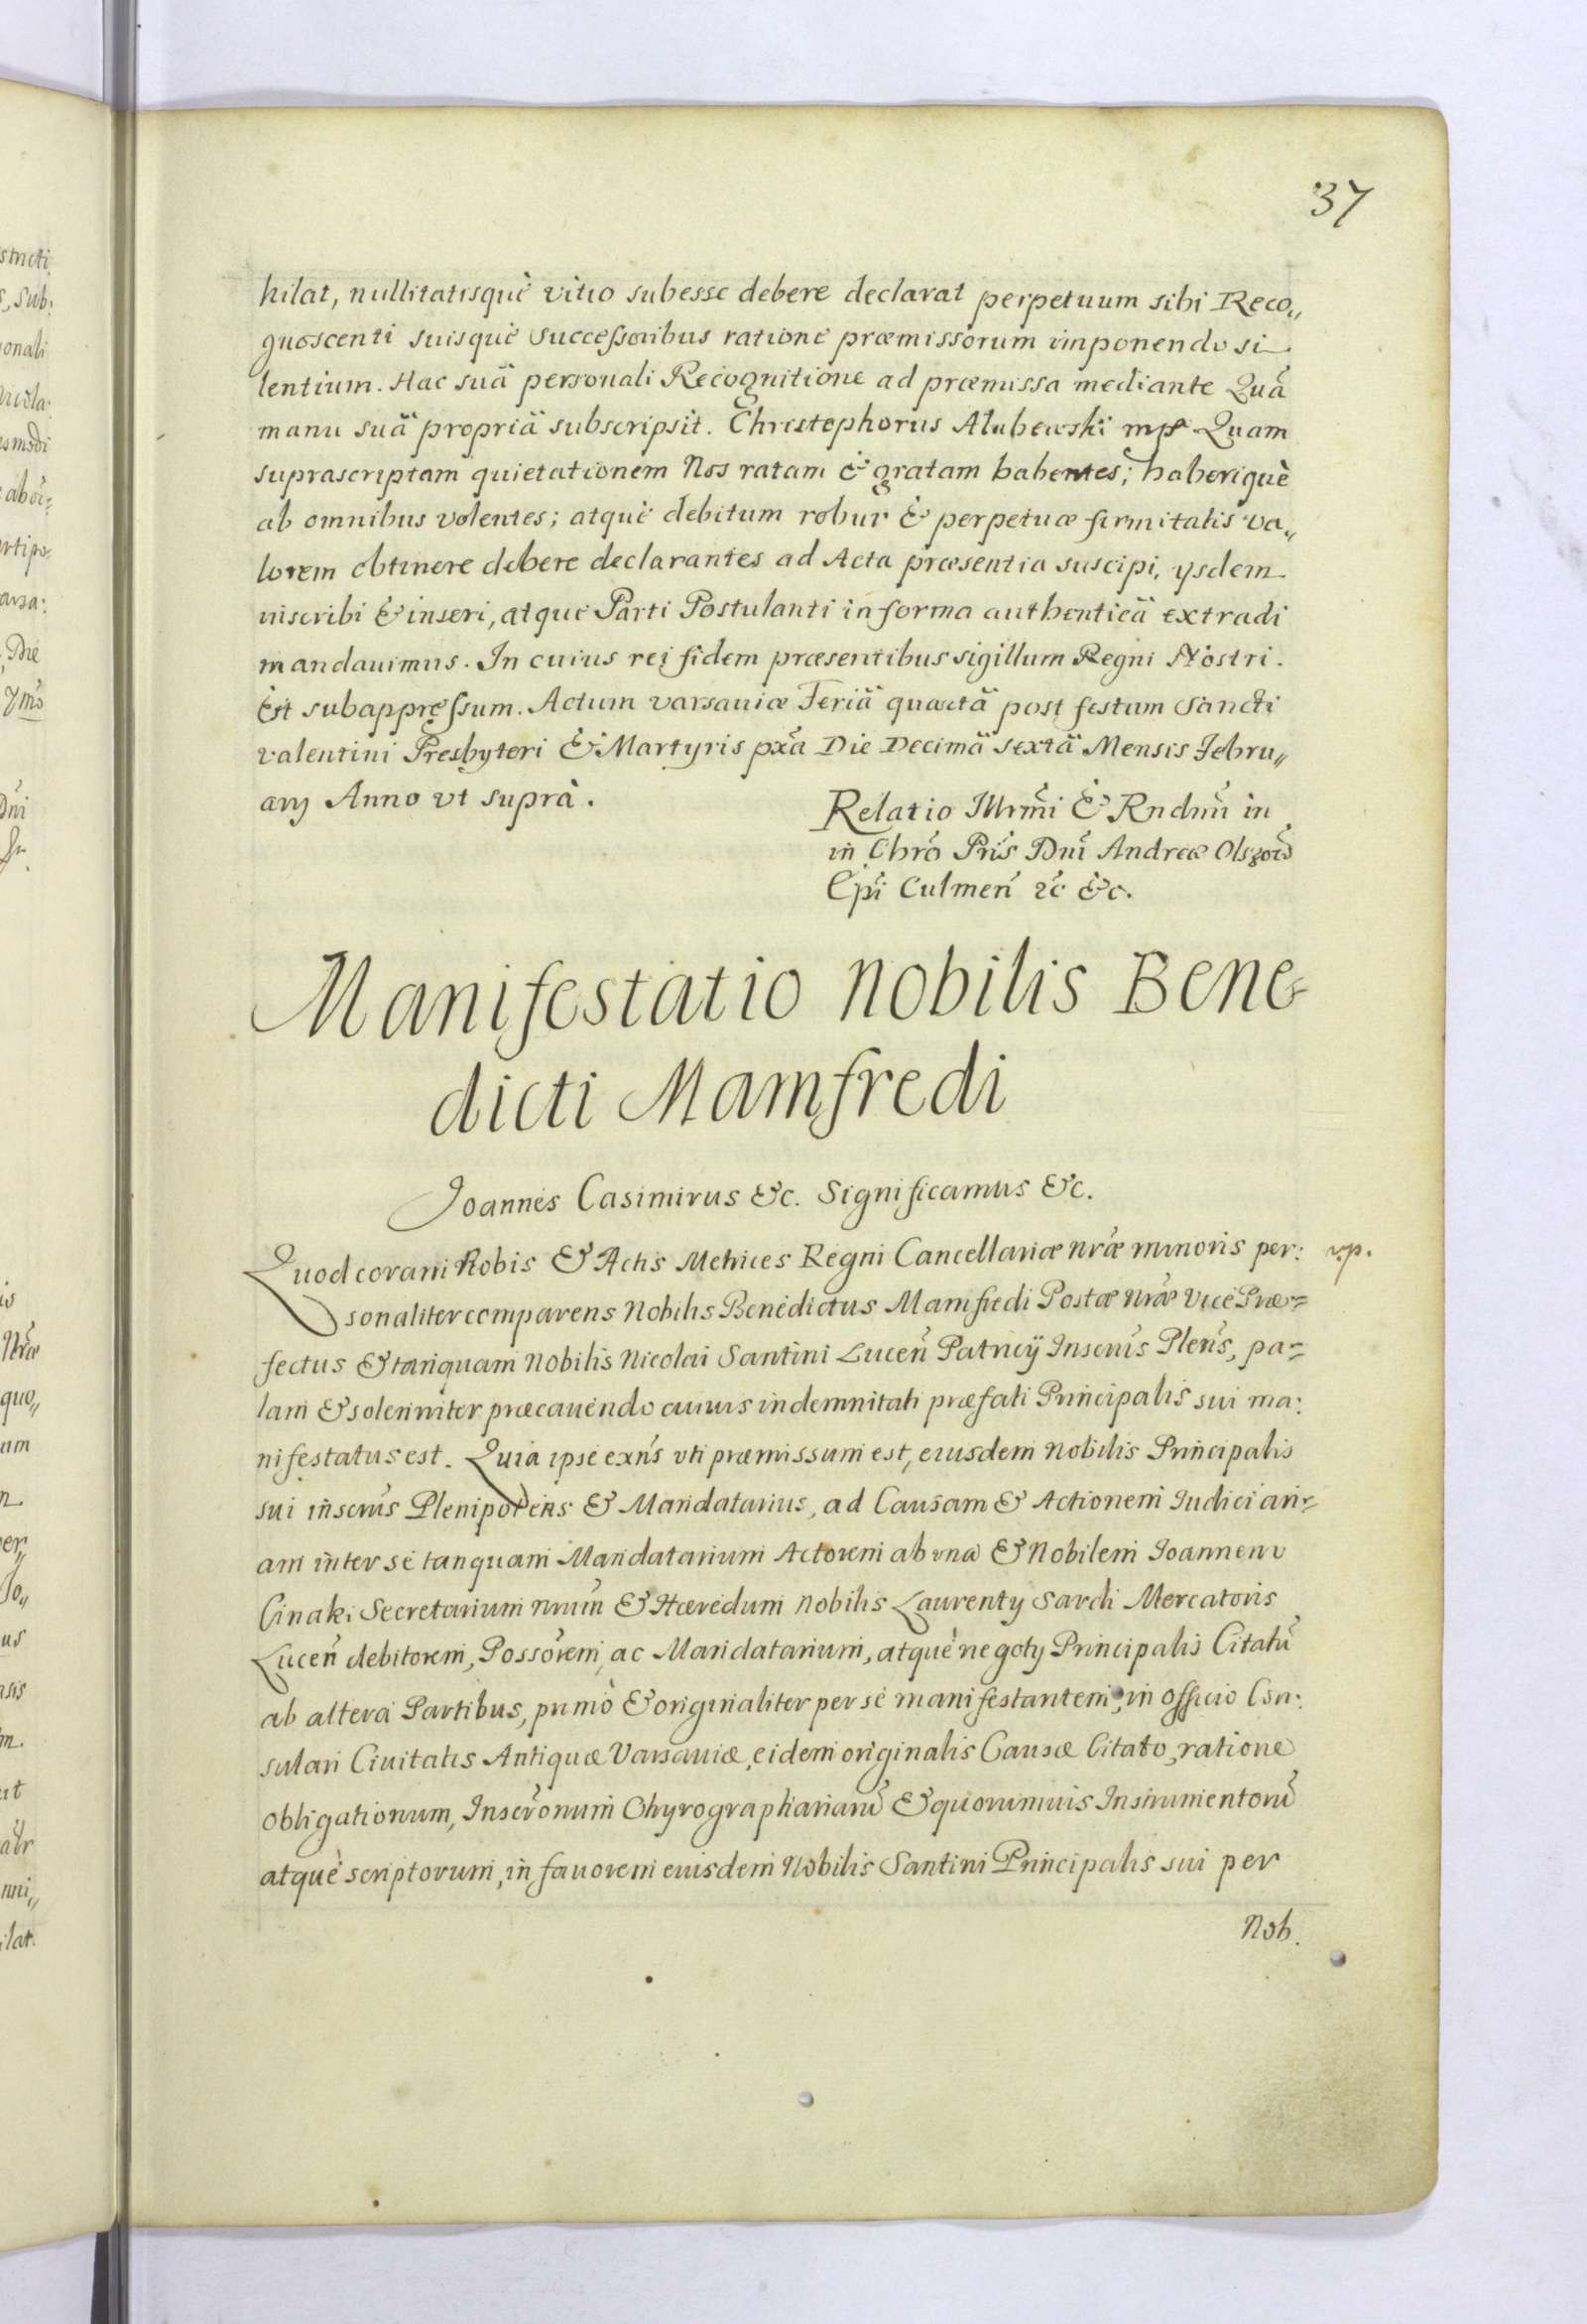 37
hilat, nullitatisquè vitio subesse debere declarat perpetuum sibi Reco„
gnoscenti suisquè successoribus ratione præmissorum imponendo si
lentium. Hac suâ personali Recognitione ad præmissa mediante Quâ
manu suâ propriâ subscripsit. Christophorus mp Quam
suprascriptam quietationem Nos ratam & gratam habentes; haberiquè
ab omnibus volentes; atquè debitum robur & perpetuæ firmitatis va„
lorem obtinere debere declarantes ad Acta præsentia suscipi, ysdem
inscribi & inseri, atquè Parti Postulanti in forma authenticâ extradi
mandauimus. In cuius rei fidem præsentibus sigillum Regni Nostri.
Est subappressum. Actum varsauiæ Feriâ quartâ post festum Sancti
valentini Presbyteri & Martyris pxã Die Decimâ sextâ Mensis Febru„
arij Anno vt suprà.
Relatio Illrmi & Rndmi in
in Chro Pris Dni Andreæ Olszow
Epi Culmen̄ &c &c.
Manifestatio Nobilis Bene-
dicti Mamfredi
Joannes Casimirus &c. Significamus &c.
Quod coram Nobis & Actis Metrices Regni Cancellariæ nræ minoris per: v.p.
sonaliter comparens Nobilis Benedictus Mamfredi Postæ nræ Vice Præ=
fectus & tanquam Nobilis Nicolai Santini Lucen̄ Patricÿ Inscrus Plens, pa=
lam & solenniter præcauendo cuiuis indemnitati præfati Principalis sui ma:
nifestatus est. Quia ipse exns vti præmissum est, eiusdem Nobilis Principalis
sui inscrus Plenipotens & Mandatarius, ad Causam & Actionem Iudiciari=
am inter se tanquam Mandatarium Actorem ab vna & Nobilem Ioannem
Cinaki Secretarium nrum & Hæredum Nobilis Laurenty Sardi Mercatoris
Lucen̄ debitorem, Possorem, ac Mandatarium, atquè negoty Principalis Citatū
ab altera Partibus, primò & originaliter per se manifestantem, in officio Con:
sulari Ciuitatis Antiquæ Varsauiæ, eidem originalis Causæ Citato, ratione
obligationum, Inscronum Chyrographariarū & quorumuis Instrumentorū
atquè scriptorum, in fauorem euisdem Nobilis Santini Principalis sui per
Nob.